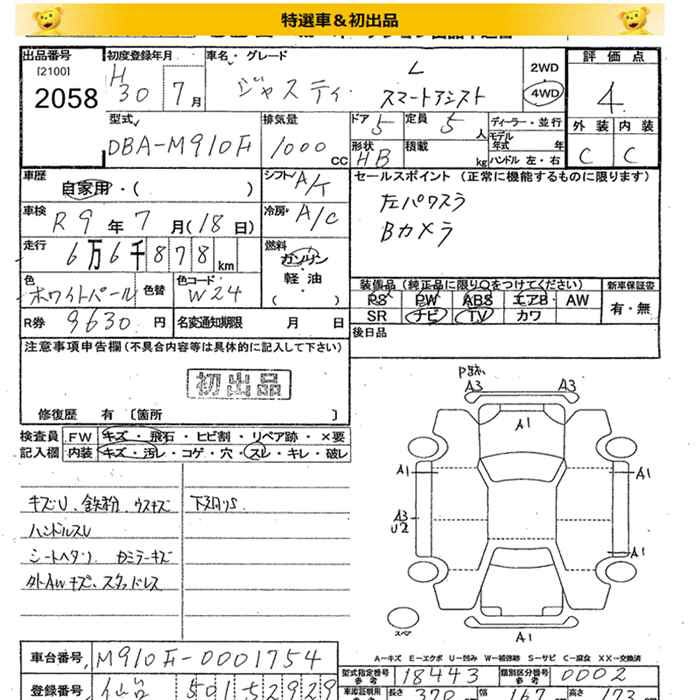 特選車＆初出品
出品番号
[2100]
2058
初度登録年月
H30 7月
車名・グレード
ジャスティ L スマートアシスト
2WD
4WD
評価点
4
外装 内装
C C
型式
DBA-M910F
排気量
1000 CC
ドア 5
定員 5人
形状 HB
積載 kg
ディーラー・並行
モデル年式 年
ハンドル 左・右
車歴
自家用・( )
シフト A/T
セールスポイント（正常に機能するものに限ります）
左パワスラ
Bカメラ
車検 R9年7月(18日)
冷房 A/C
走行
6万6千878km
燃料
ガソリン
軽油
( )
色
ホワイトパール
色替
色コード
W24
装備品（純正品に限り○をつけてください）
新車保証書
PS PW ABS エアB AW
SR ナビ TV カワ
有・無
R券 9630円
名変通知期限 月 日
後日品
注意事項申告欄（不具合内容等は具体的に記入して下さい）
初出品
修復歴 有〔箇所 〕
検査員記入欄
FW キズ・飛石・ヒビ割・リペア跡・×要
内装 キズ・汚レ・コゲ・穴・スレ・キレ・破レ
キズU、鉄粉、ウスキズ
下廻りS
ハンドルスレ
シートヘタリ
外AWキズ、スタッドレス
P跡
A3 A3
A1
A1 A1
A3
U2
A1
A1
スペア
A－キズ E－エクボ U－凹み W－補修跡 S－サビ C－腐食 XX－交換済
車台番号 M910F-0001754
型式指定番号 参考 18443
類別区分番号 参考 0002
登録番号 仙台 501 52929
長さ 370 幅 167 高さ 173